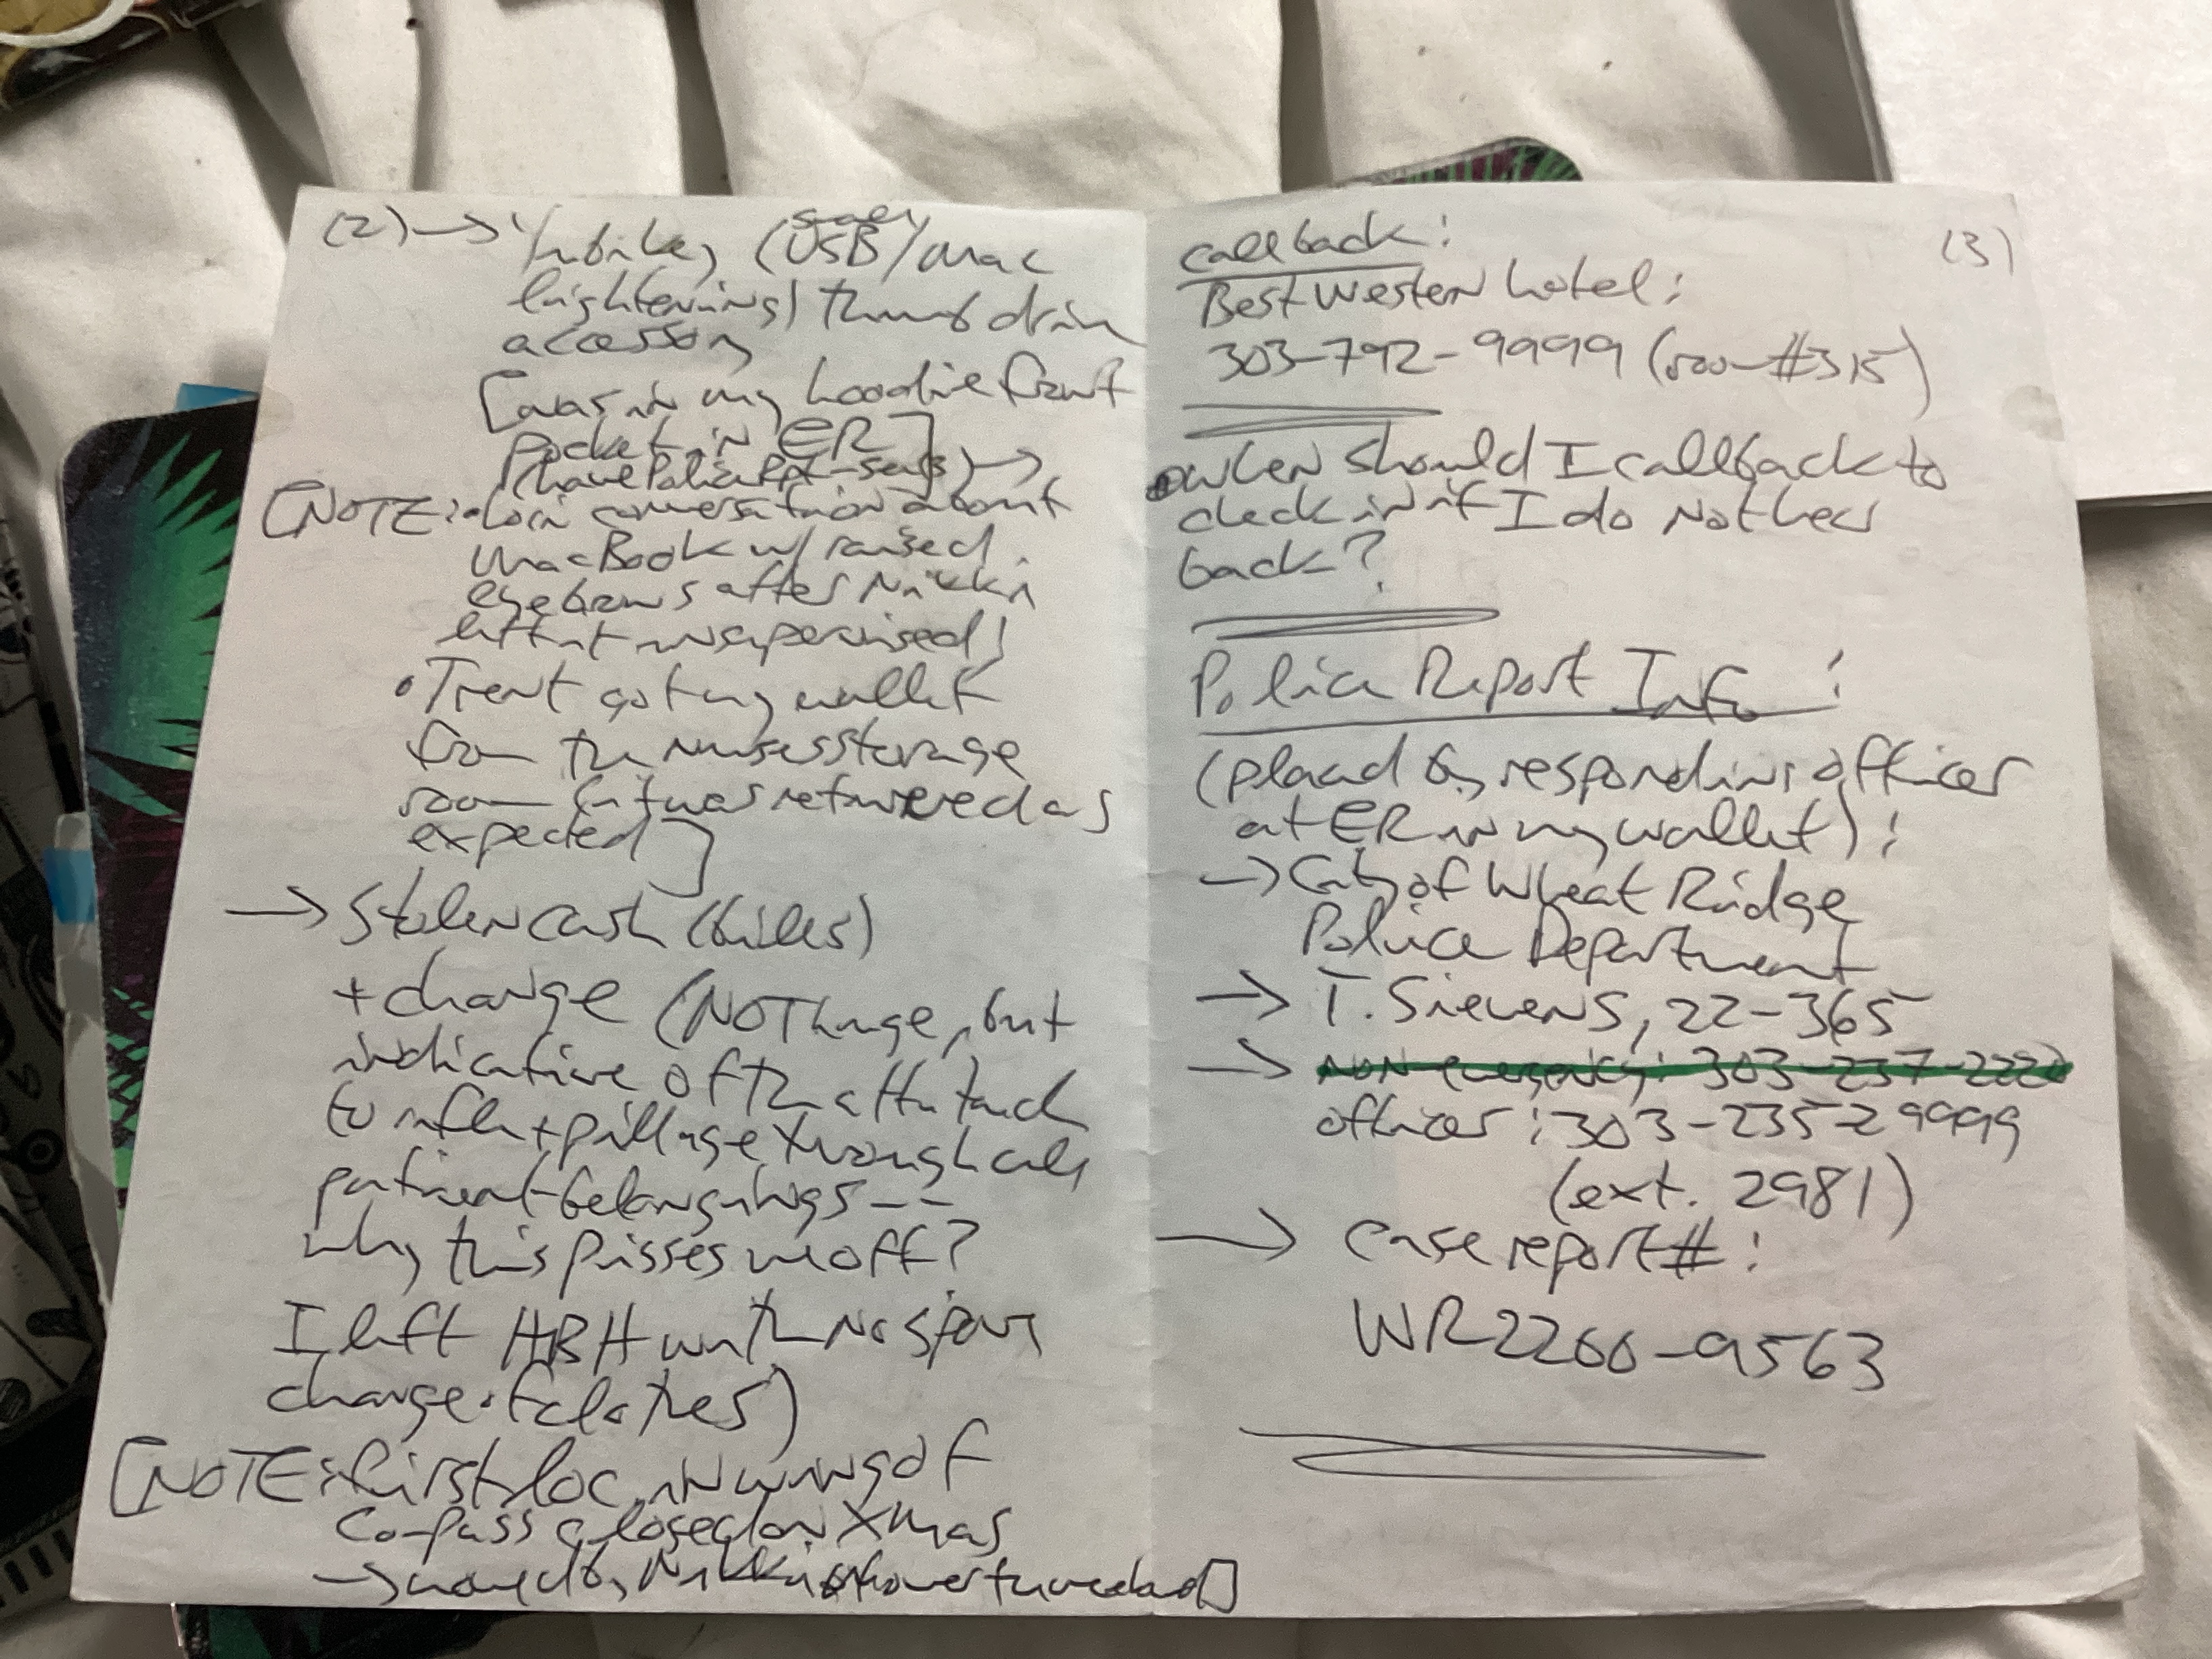 (2) → Yubikey (USB/Mac
lightening) thumb drive
accessory
[was in my hoodie front
pocket in ER]
(have Police Rpt - ) →
[NOTE: • conversation about
MacBook w/ raised
eyebrows after Nikki
left it unsupervised!
• Trent got my wallet
from the nurses storage
room (it was retrieved as
expected]
→ Stolen cash (bills)
+ change (NOT huge, but
indicative of the attitude
to rifle + pillage through all
patient belongings --
why this pisses me off?
I left HBH with no spare
change + clothes)
[NOTE: • first loc. in wing of
Compass closed on Xmas
→ moved by Nikki ]
(3)
callback:
Best Western hotel:
303-792-9999 (room #315)
• When should I callback to
check in if I do not hear
back?
Police Report Info:
(placed by responding officer
at ER in my wallet):
→ City of Wheat Ridge
Police Department
→ T. Sievens, 22-365
→ non-emergency: 303-237-2220
officer: 303-235-29999
(ext. 2981)
→ case report #:
WR2200-9563